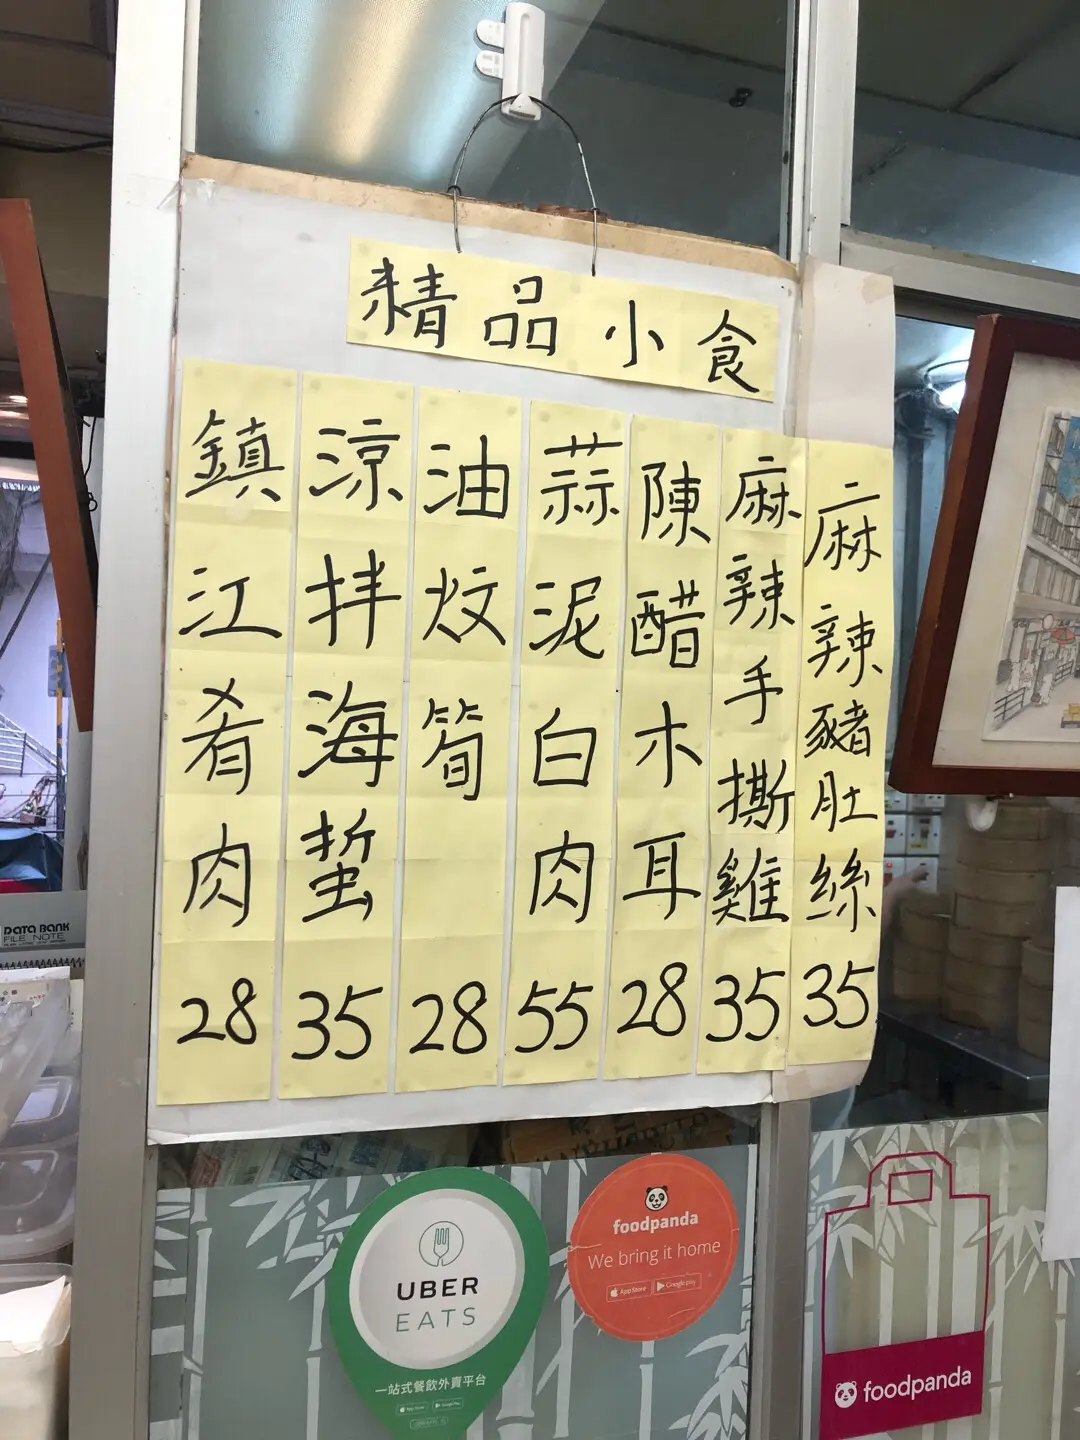 精品小食
鎮江肴肉 28
涼拌海蜇 35
油炆筍 28
蒜泥白肉 55
陳醋木耳 28
麻辣手撕雞 35
麻辣豬肚絲 35
DATA BANK
FILE NOTE
UBER
EATS
一站式餐飲外賣平台
App Store
Google Play
foodpanda
We bring it home
App Store
Google play
foodpanda